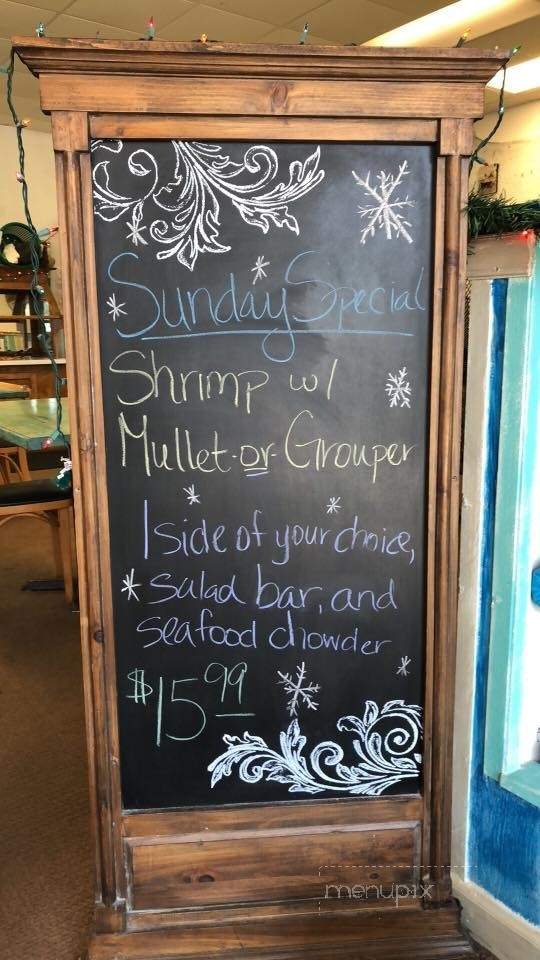 Sunday Special
Shrimp w/
Mullet-or-Grouper
1 side of your choice,
salad bar, and
seafood chowder
$15.99
menupix